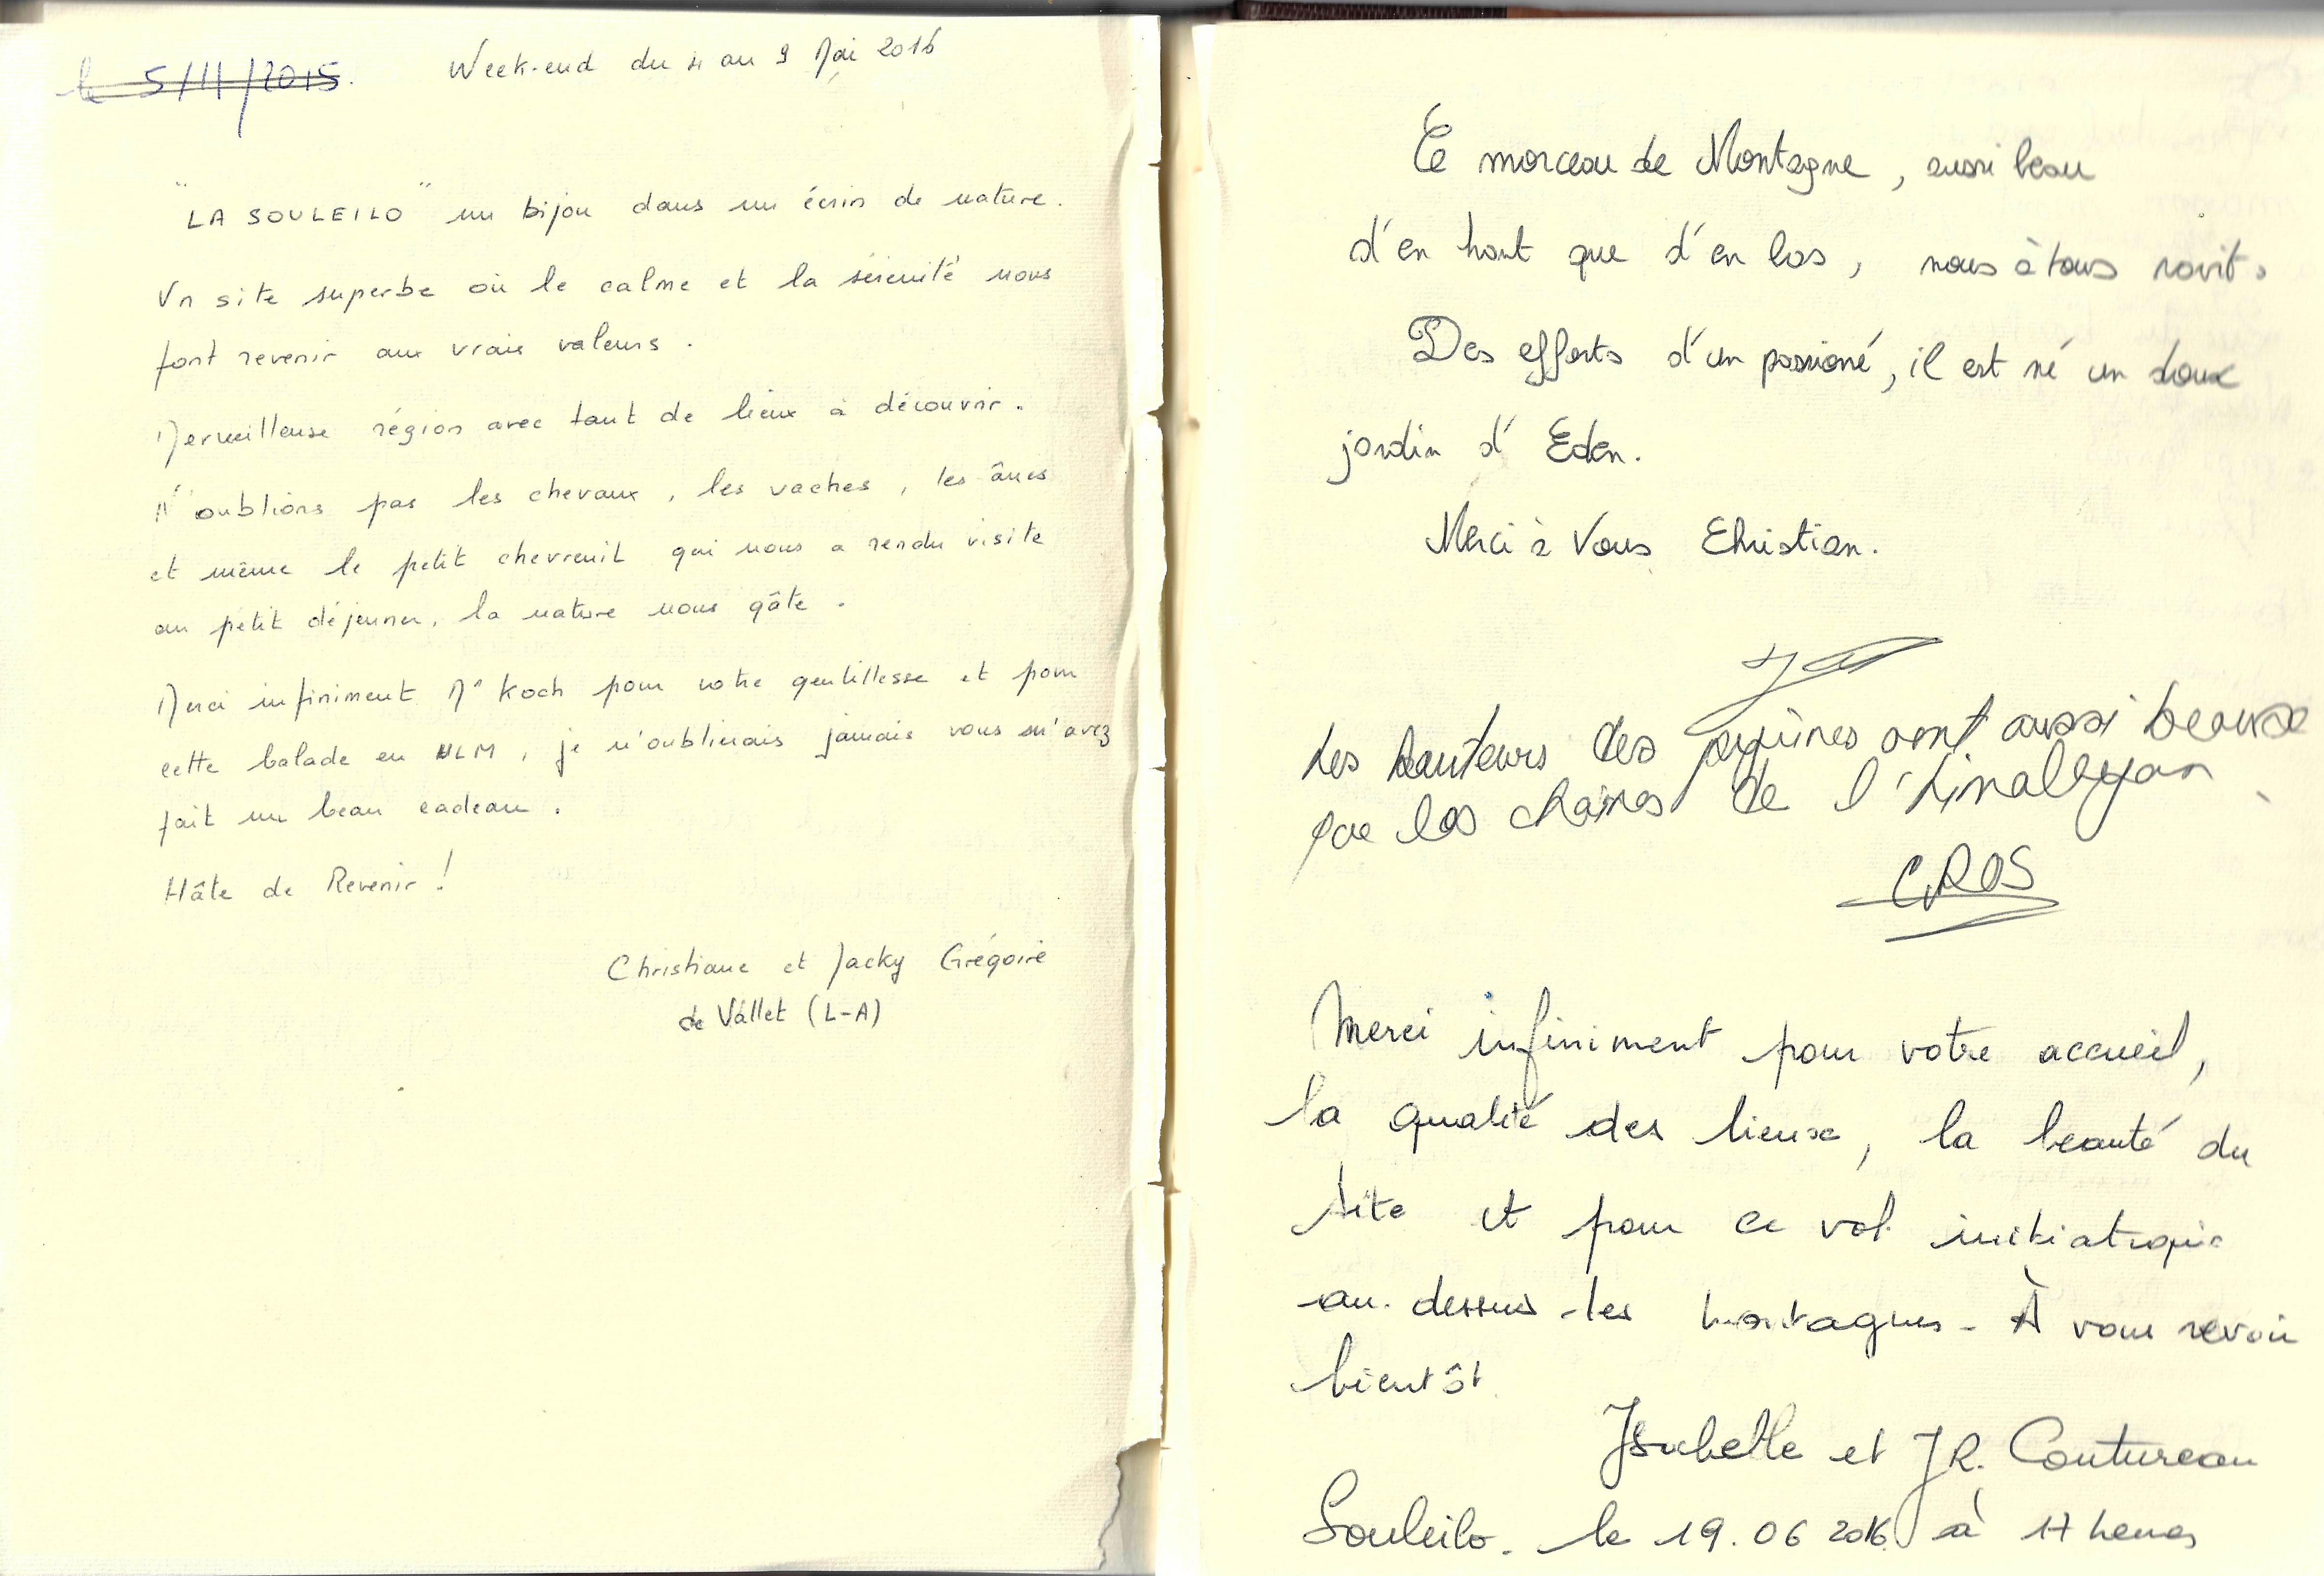 le 5/11/2015.
Week-end du 4 au 9 Mai 2016
"LA SOULEILO" un bijou dans un écrin de nature.
Un site superbe où le calme et la sérénité nous
font revenir aux vraies valeurs.
Merveilleuse région avec tant de lieux à découvrir.
N'oublions pas les chevaux, les vaches, les ânes
et même le petit chevreuil qui nous a rendu visite
au petit déjeuner, la nature nous gâte.
Merci infiniment Mr Koch pour votre gentillesse et pour
cette balade en ULM, je n'oublierais jamais vous m'avez
fait un beau cadeau.
Hâte de Revenir !
Christiane et Jacky Grégoire
de Vallet (L-A)
Ce morceau de Montagne, aussi beau
d'en haut que d'en bas, nous à tous ravit.
Des efforts d'un passioné, il est né un doux
jardin d'Eden.
Merci à Vous Christian.
Les hauteurs des pyrines sont aussi beause
que les chaines de l'himalayan
CROS
Merci infiniment pour votre accueil,
la qualité des lieux, la beauté du
site et pour ce vol initiatique
au-dessus des montagnes - À vous revoir
bientôt
Isabelle et JR. Coutureau
Souleilo. le 19.06 2016 à 17 heures